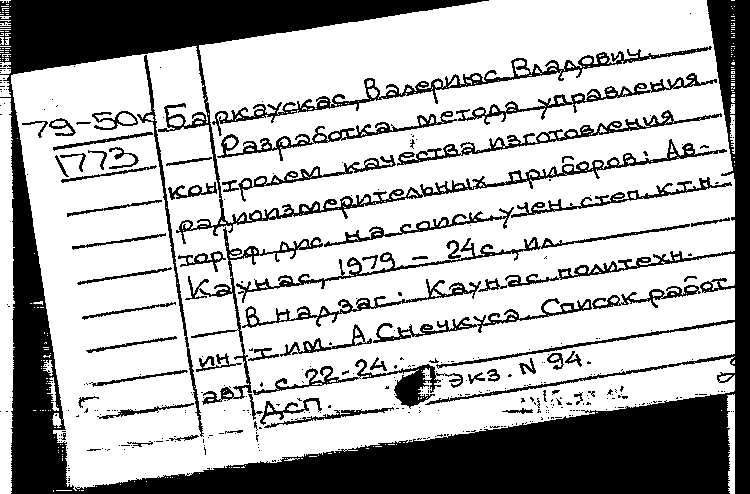 79-50к Баркаускас, Валериюс Владович.
1773 Разработка метода управления
контролем качества изготовления
радиоизмерительных приборов: Ав-
тореф. дис. на соиск. учен. степ. к.т.н. -
Каунас, 1979. - 24с., ил.
В надзаг: Каунас. политехн.
ин-т им. А.Снечкуса. Список работ
авт.: с. 22-24.
ДСП. экз. N 94.